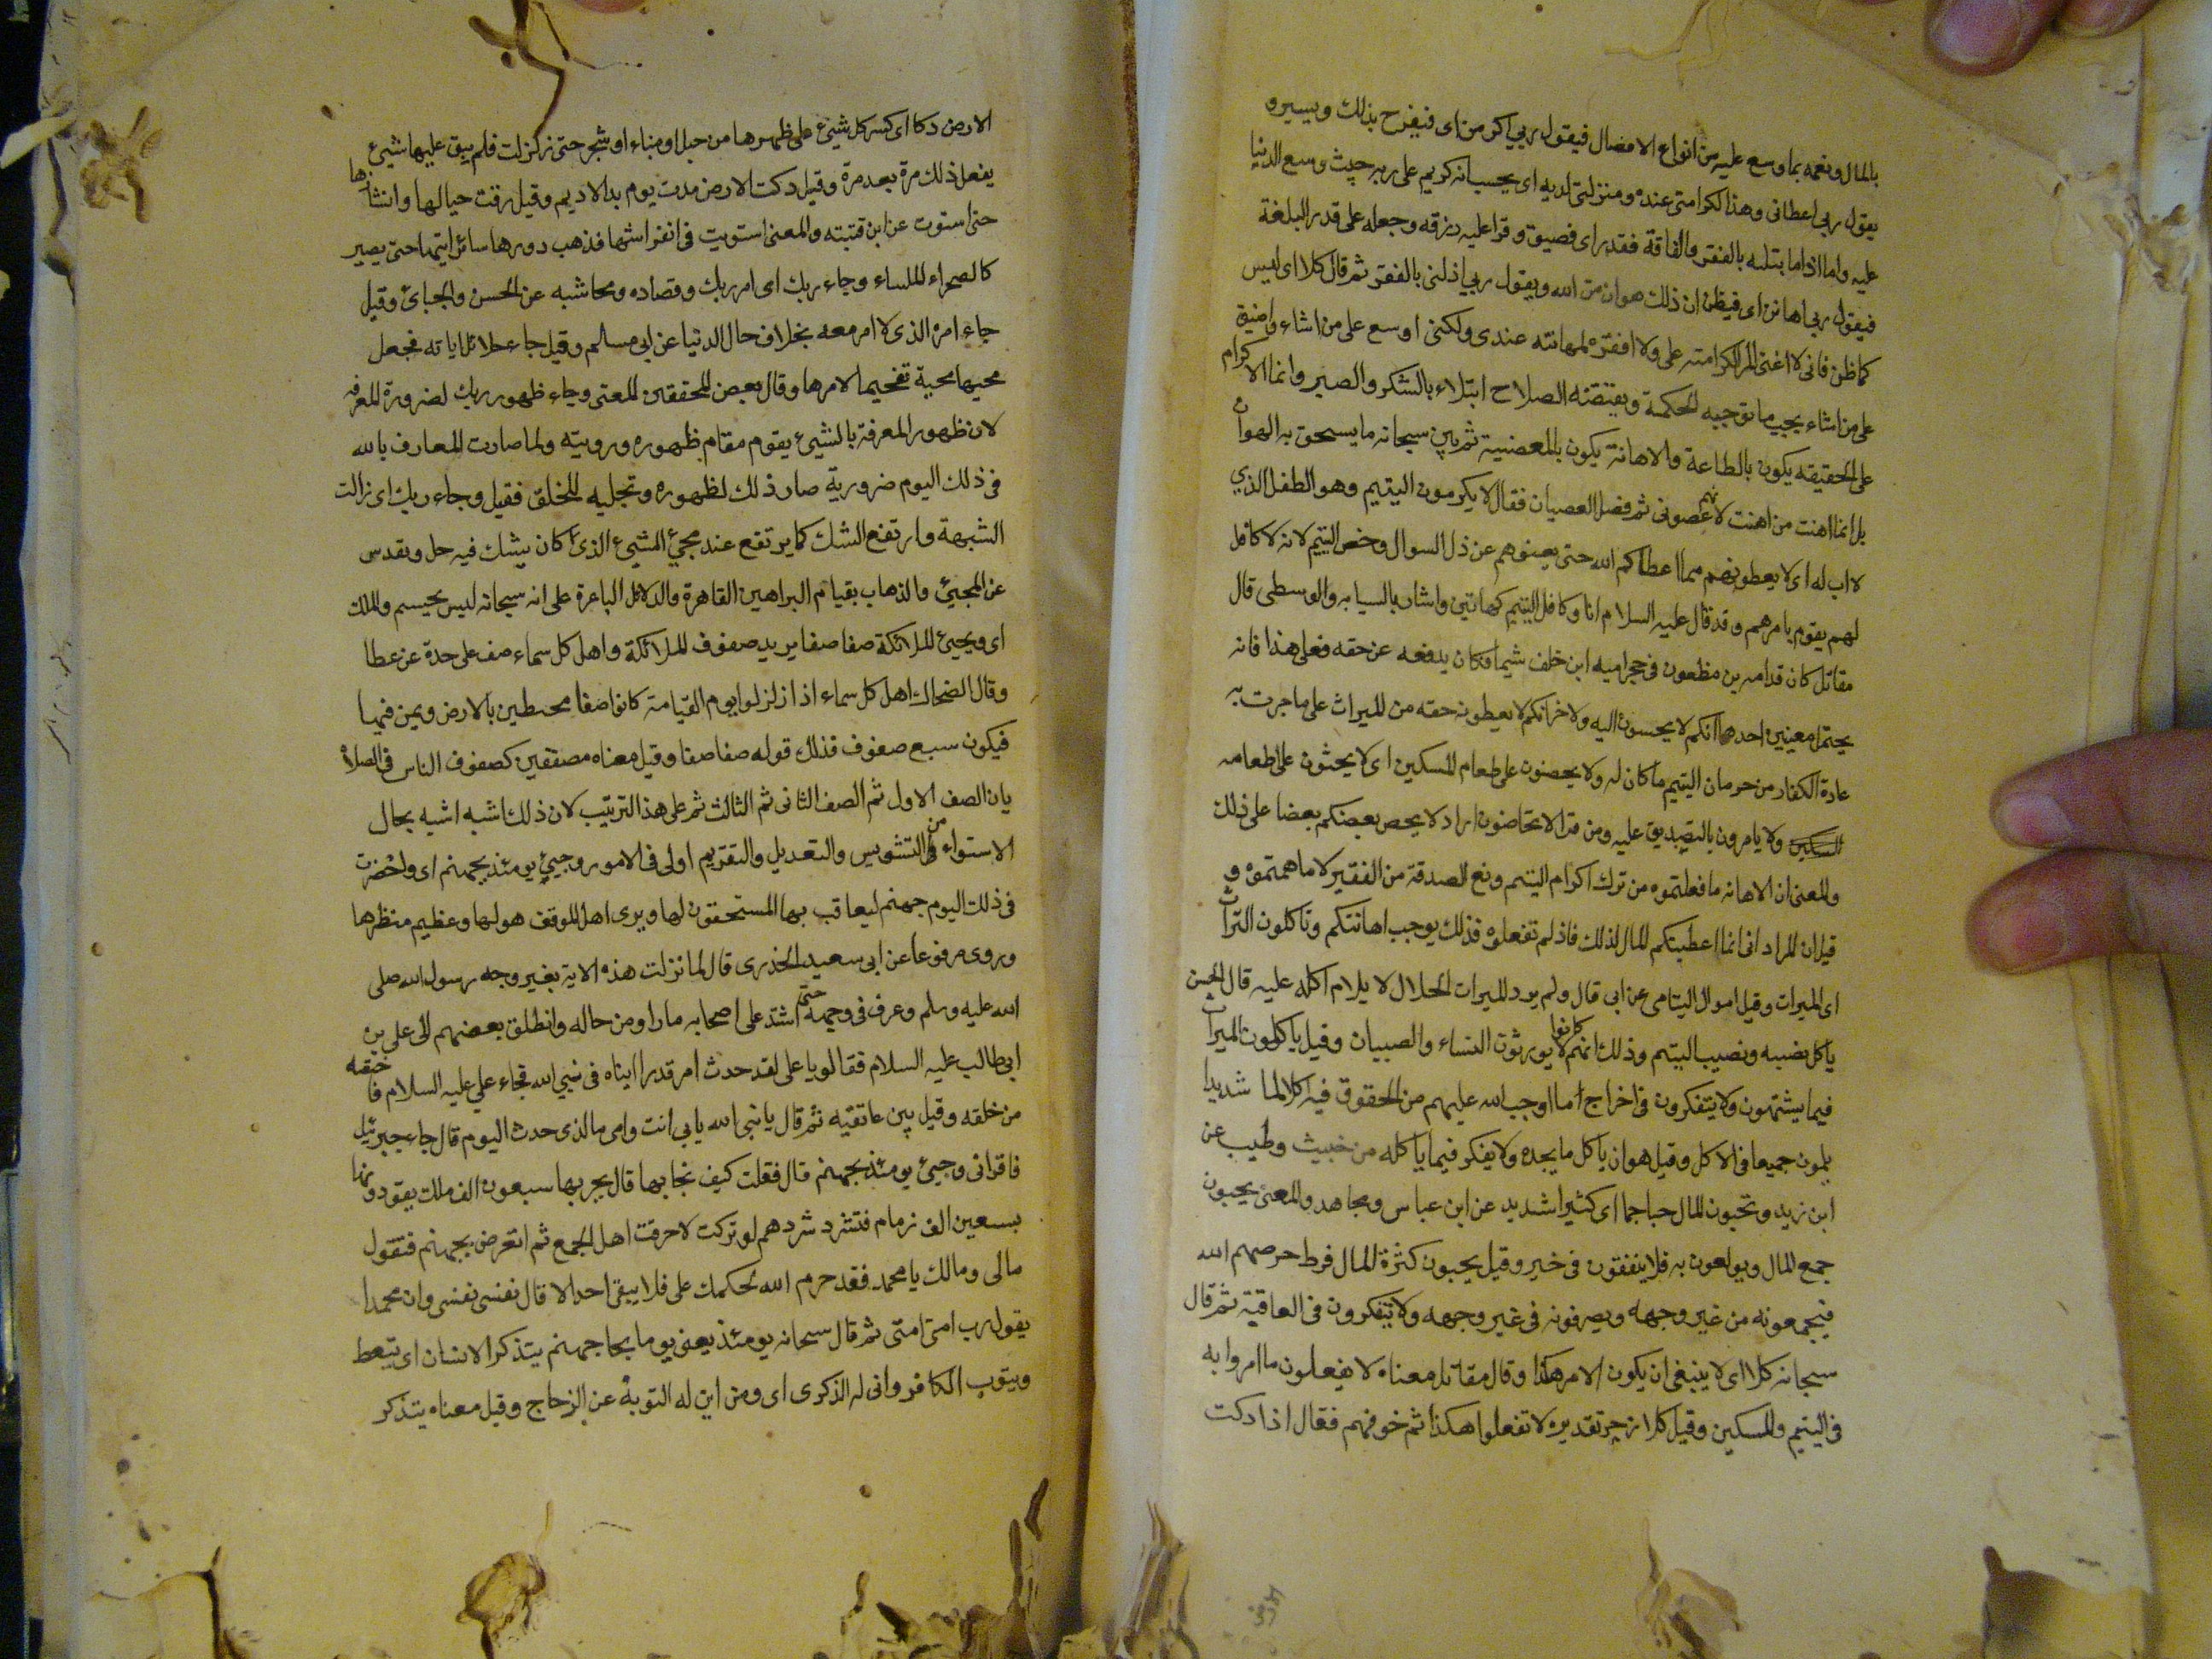 بالمال ونعمه بما وسع عليه من انواع الافضال فيقول ربي اكرمن اى فيفرح بذلك ويسير و
يقول ربي اعطانى وهذا لكرامتى عنده ومنزلتى لديه اى يحسب انه كريم على ربه حيث وسع الدنيا
عليه واما اذا ما ابتليه بالفقر والفاقة فقدر اى فضيق وقرا عليه رزقه وجعله على قدر البلغة
فيقول ربي اهانن اى فيظن ان ذلك هوان من الله ويقول ربي اذلنى بالفقر ثم قال كلا اى ليس
كما ظن فانى لا اغنى المرا لكرامته على ولا افقره لمهانته عندى ولكنى اوسع على من اشاء واضيق
على من اشاء بحيب ما توجبه الحكمة ويقتضه الصلاح ابتلاء بالشكر والصبر وانما الاكرام
على الحقيقه يكون بالطاعة والاهانة يكون بالمعصية ثم بين سبحانه ما يسحق به الهوان
بل انما اهنت من اهنت لانهم عصونى ثم فصل العصيان فقال لا يكرمون اليتيم وهو الطفل الذي
لا اب له اى لا يعطونهم مما اعطاكم الله حتى يعينوهم عن ذل السوال وخص اليتيم لانه لا كافل
لهم يقوم بامرهم وقد قال عليه السلام انا وكافل اليتيم كهاتين واشار بالسبابه والوسطى قال
مقاتل كان قدامه بن مظعون فى حجر اميه ابن خلف يتيما فكان يدفعه عن حقه فعلى هذا فانه
يحتمل معنيين احدهما انكم لا يحسنون اليه والاخر انكم لا يعطونه حقه من الميراث على ما جرت به
عادة الكفار من حرمان اليتيم ما كان له ولا يحضون على طعام المسكين اى لا يحثون على طعامه
المسكين ولا يامرون بالتصديق عليه ومن قرا لا تحاضون اراد لا يحص بعضكم بعضا على ذلك
والمعنى ان الاهانه ما فعلتموه من ترك اكرام اليتيم ومنع الصدقة من الفقير لا ما همتموه و
قيل ان المراد انى انما اعطيتكم المال لذلك فاذ لم تفعلوه فذلك يوجب اهانتكم وتاكلون التراث
اى الميراث وقيل اموال اليتامى عن ابى قال ولم يرد الميراث الحلال لا يلام اكله عليه قال الحسن
ياكل نصيبه ونصيب اليتيم وذلك انهم كانوا لا يورثون النساء والصبيان وقيل ياكلون الميراث
فيما يشتهون ولا يتفكرون فى اخراج ما اوجب الله عليهم من الحقوق فيه اكلا لما شديدا
يلمون جميعا فى الاكل وقيل هو ان ياكل ما يجده ولا يفكر فيما ياكله من خبيث وطيب عن
ابن زيد وتحبون المال حبا جما اى كثيرا شديد عن ابن عباس ومجاهد والمعنى يحبون
جمع المال ويولعون به فلا ينفقون فى خير وقيل يحبون كثرة المال فرط حرصهم الله
فيجمعونه من غير وجهه ويصرفونه فى غير وجهه ولا يتفكرون فى العاقبة ثم قال
سبحانه كلا اى لا ينبغى ان يكون الامر هكذا وقال مقاتل معناه لا يفعلون ما امروا به
فى اليتيم والمسكين وقيل كلا زجر تقديره لا تفعلوا هكذا ثم خوفهم فقال اذا دكت
الارض دكا اى كسر كل شيئ على ظهرها من جبل او بناء او شجر حتى زلزلت فلم يبق عليها شيئ
يفعل ذلك مرة بعد مرة وقيل دكت الارض مدت يوم بدا الاديم وقيل دقت جبالها وانشازها
حتى استوت عن ابن قتيبه والمعنى استويت فى انفراشها فذهب دورها سائر ابنيتها حتى يصير
كالصحراء الملساء وجاء ربك اى امر ربك وقضاده ومحاسبه عن الحسن والجبائ وقيل
جاء امره الذى لا امر معه بخلاف حال الدنيا عن ابى مسالم وقيل جاء جلائل اياته فجعل
مجيها مجية تفخيما لامرها وقال بعض المحققين المعنى وجاء ظهور ربك لضرورة المعرفه
لان ظهور المعرفة بالشيئ يقوم مقام ظهوره ورويته ولما صارت المعارف بالله
فى ذلك اليوم ضرورية صار ذلك لظهوره وتجليه للخلق فقيل وجاء ربك اى زالت
الشبهة وارتفع الشك كما يرتفع عند مجيئ الشيئ الذى كان يشك فيه جل وتقدس
عن المجيئ والذهاب بقيام البراهين القاهرة والدلائل الباهرة على انه سبحانه ليس بجسم والملك
اى ويجيئ الملائكة صفا صفا يريد صفوف الملائكة واهل كل سماء صف على حدة عن عطا
وقال الضحاك اهل كل سماء اذا زلزلوا يوم القيامة كانوا صفا محيطين بالارض وبمن فيها
فيكون سبع صفوف فذلك قوله صفا صفا وقيل معناه مصففين كصفوف الناس فى الصلاة
ياتى الصف الاول ثم الصف الثانى ثم الثالث ثم على هذا الترتيب لان ذلك اشبه اشبه بحال
الاستواء من التشويس والتعديل والتقويم اولى فى الامور وجيئ يومئذ بجهنم اى واحضرت
فى ذلك اليوم جهنم ليعاقب بها المستحقون لها ويرى اهل الموقف هولها وعظيم منظرها
وروى مرفوعا عن ابى سعيد الخدرى قال لما نزلت هذه الاية تغير وجه رسول الله صلى
الله عليه وسلم وعرف فى وجهه حتى اشتد على اصحابه ما راوا من حاله وانطلق بعضهم الى على بن
ابى طالب عليه السلام فقالوا يا على لقد حدث امر قد رايناه فى نبي الله فجاء علي عليه السلام فاحتضنه
من خلفه وقيل بين عاتقيه ثم قال يا نبى الله بابى انت وامى ما الذى حدث اليوم قال جاء جبرئيل
فاقرانى وجيئ يومئذ بجهنم قال فقلت كيف نجا بها قال يجربها سبعون الف ملك يقودونها
بسبعين الف زمام فتشرد شردهم لو تركت لاحرقت اهل الجمع ثم اتعرض بجهنم فتقول
مالى ومالك يا محمد فقد حرم الله لحكمك على فلا يبقى احد الا قال نفسى نفسى وان محمدا
يقول رب امتى امتى ثم قال سبحانه يومئذ يعنى يوما يجا جهنم يتذكر الانسان اى يتعظ
ويتوب الكافر وانى له الذكرى اى ومن اين له التوبة عن الزجاج وقيل معناه يتذكر